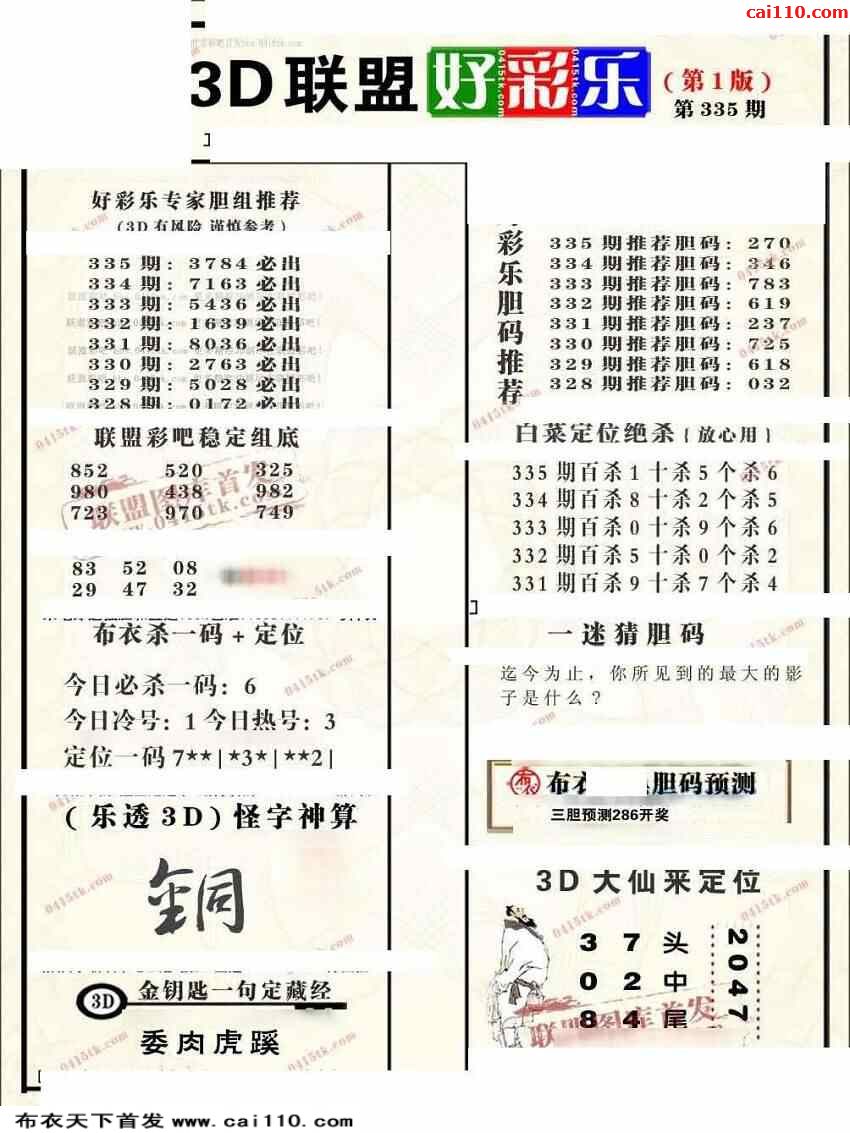 cai110.com
3D联盟好彩乐
(第1版)
第335期
好彩乐专家胆组推荐
(3D有风险 谨慎参考)
335期: 3784必出
334期: 7163必出
333期: 5436必出
332期: 1639必出
331期: 8036必出
330期: 2763必出
329期: 5028必出
328期: 0172必出
联盟彩吧稳定组底
852 520 325
980 438 982
723 970 749
83 52 08
29 47 32
布衣杀一码+定位
今日必杀一码: 6
今日冷号: 1 今日热号: 3
定位一码7**|*3*|**2|
(乐透3D)怪字神算
銅
3D 金钥匙一句定藏经
委肉虎蹊
彩乐胆码推荐
335期推荐胆码: 270
334期推荐胆码: 346
333期推荐胆码: 783
332期推荐胆码: 619
331期推荐胆码: 237
330期推荐胆码: 725
329期推荐胆码: 618
328期推荐胆码: 032
白菜定位绝杀{放心用}
335期百杀1十杀5个杀6
334期百杀8十杀2个杀5
333期百杀0十杀9个杀6
332期百杀5十杀0个杀2
331期百杀9十杀7个杀4
一迷猜胆码
迄今为止，你所见到的最大的影
子是什么?
布衣 胆码预测
三胆预测286开奖
3D大仙来定位
3 7 头
0 2 中
8 4 尾
2047
联盟图库首发
www.0415tk.com
布衣天下首发 www.cai110.com